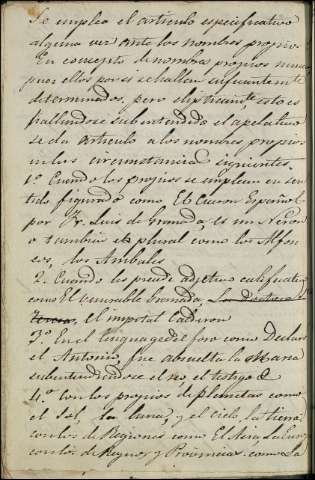 Se emplea el articulo especificativo
alguna vez ante los nombres propios.
En concepto de nombres propios nunca
pues ellos por si se hallan suficientemte
determinados, pero elipticamte esto es
hallandose subentendido el apelativo
se da articulo a los nombres propios
en las circunstancias siguientes.
1.º Cuando los propios se emplean en sen
tido figurado como El Ciceron Español
por Fr. Luis de Granada, es un Neron
o tambien en plural como los Alfon
sos, los Anibales
2. Cuando les precede adjetivo calificativo
como El venerable Granada, La Doctora Sta
Teresa, el inmortal Calderon
3.º En el lenguage del foro como Declaró
el Antonio, fue absuelta la Maria
subentendiendose el reo el testigo &
4.º Con los propios de planetas como
el Sol, la luna, y el cielo la tierra
con los de Regiones como El Asia, la Europa
con los de Reynos y Provincias como La